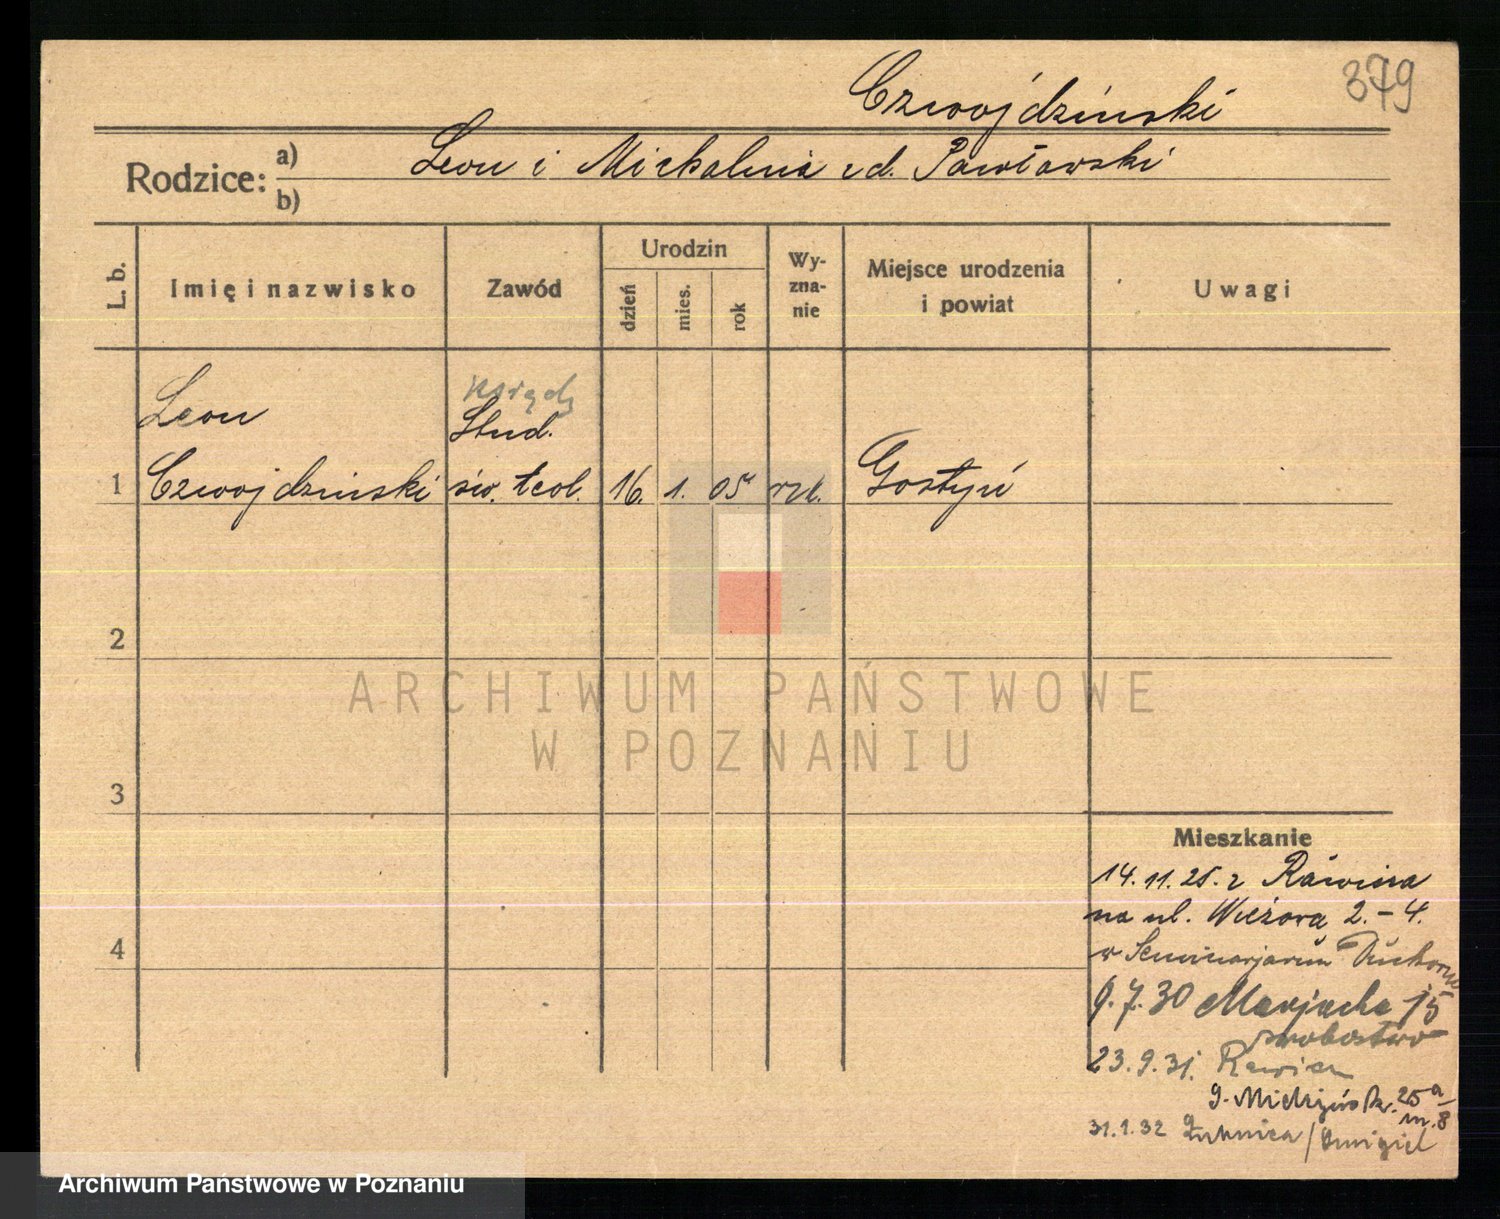 379
Czwojdziński
Rodzice: a) Leon i Michalina z d. Pawłowski
b)
L. b.
Imię i nazwisko
Zawód
Urodzin
dzień
mies.
rok
Wy-
zna-
nie
Miejsce urodzenia
i powiat
Uwagi
Leon
Stud.
1 Czwojdzinski św. teol. 16. 1. 05 rzk. Gostyń
2
ARCHIWUM PAŃSTWOWE
W POZNANIU
3
Mieszkanie
14.11.25. z Rawicza
na ul. Wieżowa 2.-4.
4
w Seminarjum Duchown
9.7.30 15
probostwo
23.9.31. Rawicz
25a
m. 8
31.1.32 /Śmigiel
Archiwum Państwowe w Poznaniu